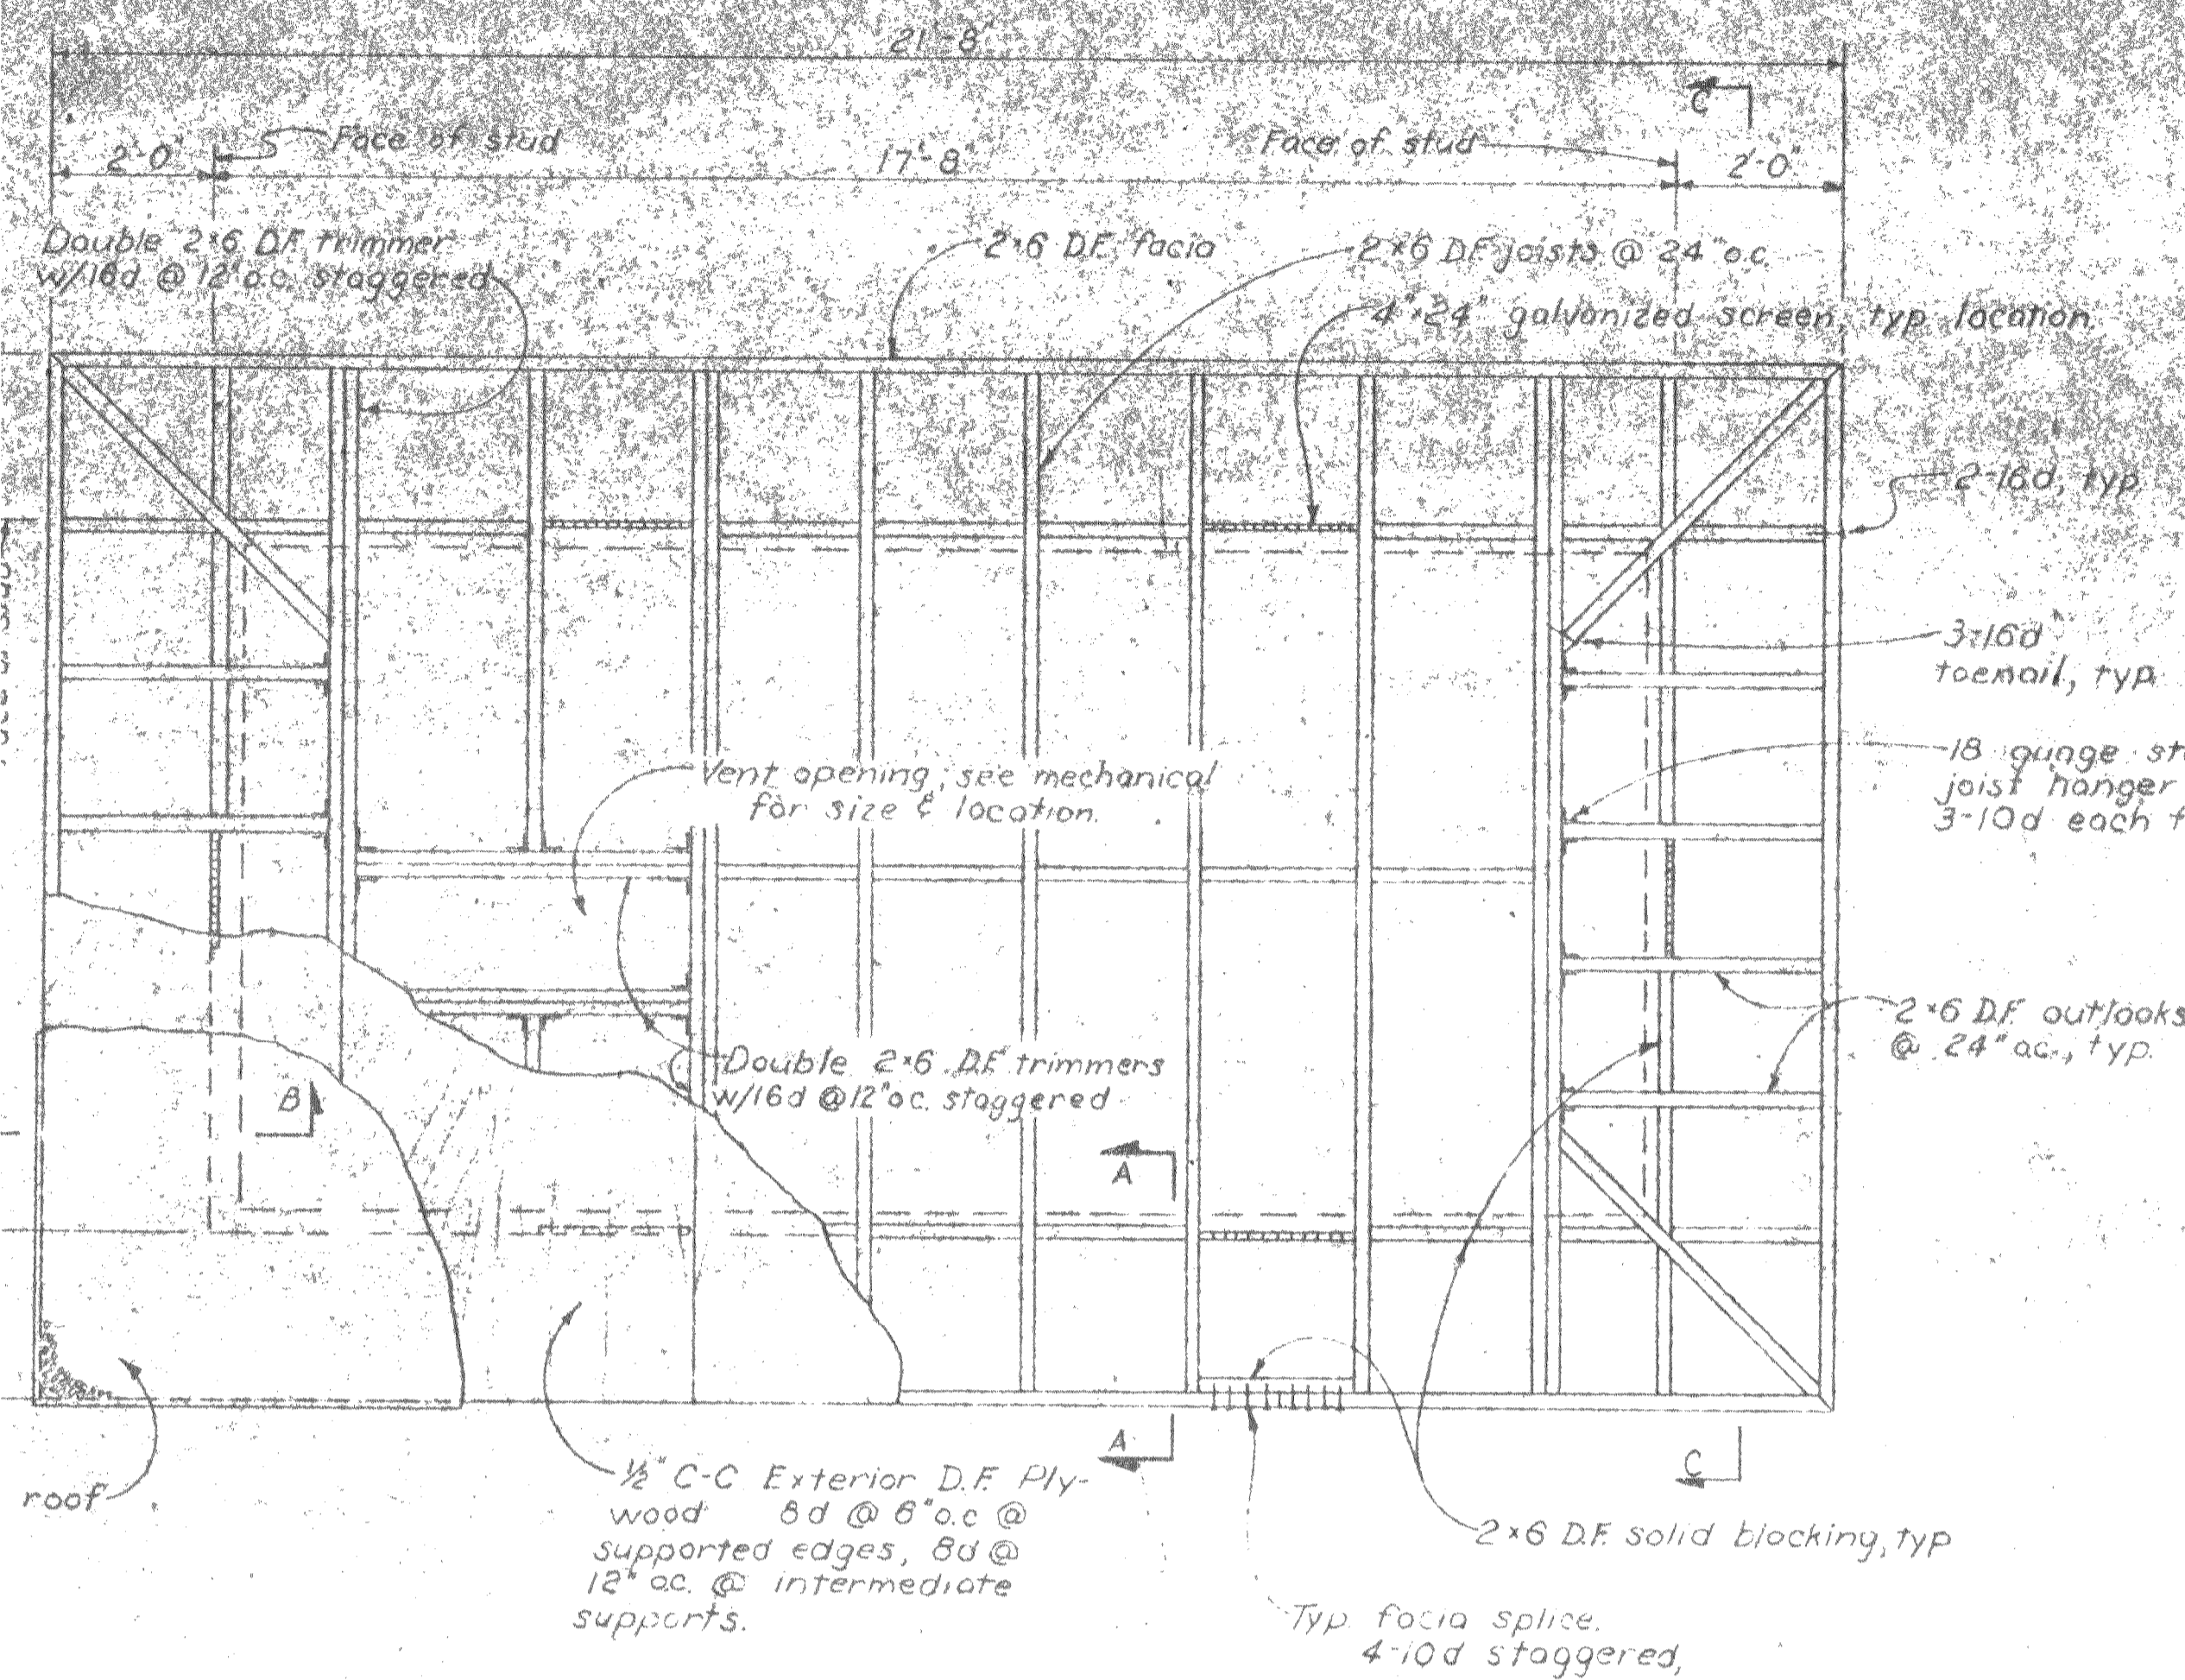 21'-8"
C
2'-0"
Face of stud
17'-8"
Face of stud
2'-0"
Double 2×6 D.F. trimmer
w/16d @ 12" o.c. staggered
2×6 D.F. facia
2×6 D.F. joists @ 24" o.c.
4"×24" galvanized screen, typ location.
2-16d, typ
3-16d
toenail, typ.
Vent opening, see mechanical
for size & location.
18 gunge
joist hanger
3-10d each
2×6 D.F. outlooks
@ 24" o.c., typ.
Double 2×6 D.F. trimmers
w/16d @ 12" o.c. staggered
B
A
A
C
roof
½" C-C Exterior D.F. Ply-
wood 8d @ 6" o.c @
supported edges, 8d @
12" o.c. @ intermediate
supports.
2×6 D.F. solid blocking, typ
Typ. facia splice.
4-10d staggered,